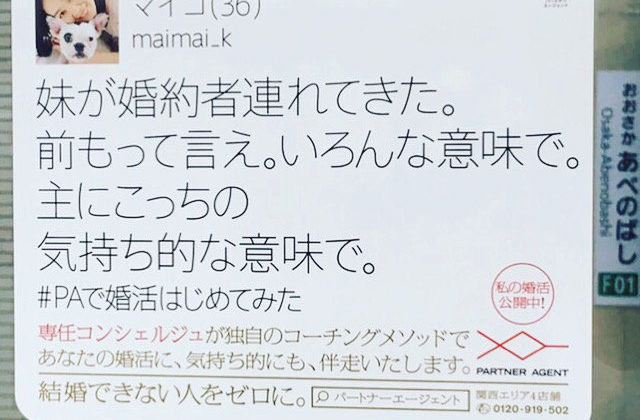 マイコ(36)
maimai_k
妹が婚約者連れてきた。
前もって言え。いろんな意味で。
主にこっちの
気持ち的な意味で。
#PAで婚活はじめてみた
私の婚活
公開中!
専任コンシェルジュが独自のコーチングメソッドで
あなたの婚活に、気持ち的にも、伴走いたします。
PARTNER AGENT
結婚できない人をゼロに。
パートナーエージェント
関西エリア4店舗
0120-919-502
おおさか あべのばし
Osaka-Abenobashi
F01